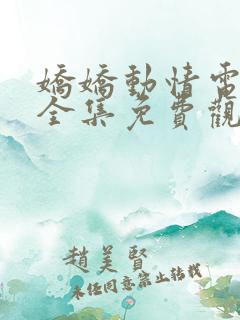 嬌嬌動情電
全集免費觀
趙美賢
未任同意禁止轉載